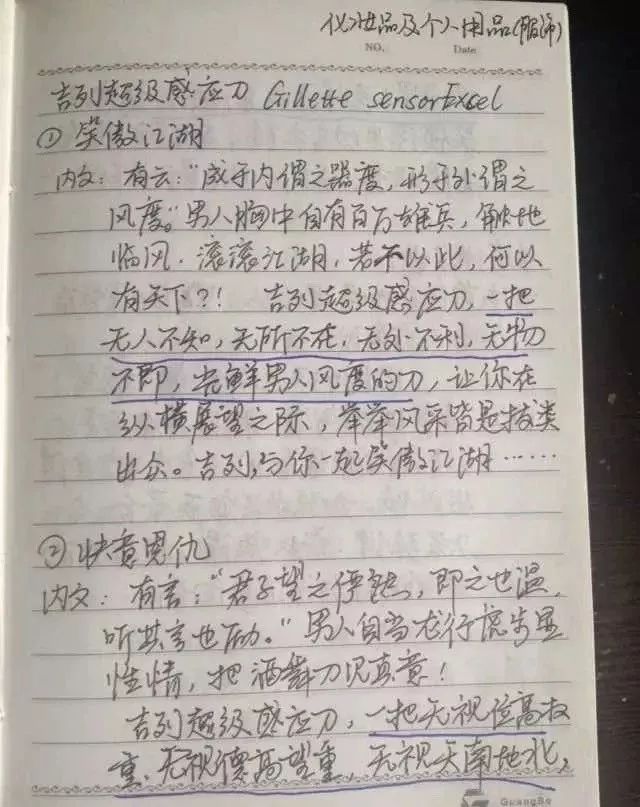 化妆品及个人用品(服饰)
NO.
Date
吉列超级感应刀 Gillette sensorExcel
① 笑傲江湖
内文：有云："成于内谓之器度，形于外谓之
风度。"男人胸中自有百万雄兵，触地
临风，滚滚江湖，若不以此，何以
有天下？！ 吉列超级感应刀，一把
无人不知，无所不在，无处不利，无物
不即，尝鲜男人风度的刀，让你在
纵横展望之际，举举风采皆是拔类
出众。吉列，与你一起笑傲江湖……
② 快意恩仇
内文：有言："君子望之俨然，即之也温，
听其言也励。"男人自当龙行虎步显
性情，把酒舞刀见真意！
吉列超级感应刀，一把无视位高权
重、无视德高望重、无视天南地北，
GuangBo